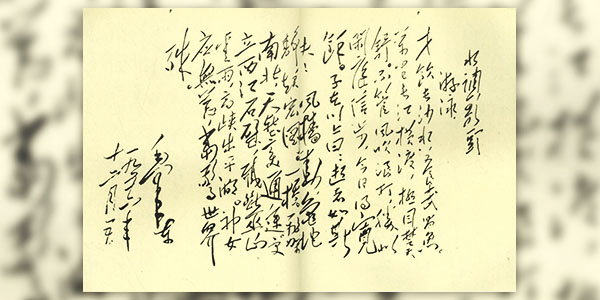 水调歌头
游泳
才饮长沙水，又食武昌鱼。
万里长江横渡，极目楚天
舒。不管风吹浪打，胜似
闲庭信步，今日得宽
馀。子在川上曰：逝者如斯
夫！风樯动，龟蛇
静，起宏图。一桥飞架
南北，天堑变通途。更
立西江石壁，截断巫山
云雨，高峡出平湖。神女
应无恙，当惊世界
殊。
毛泽东
一九五六年
十二月五日